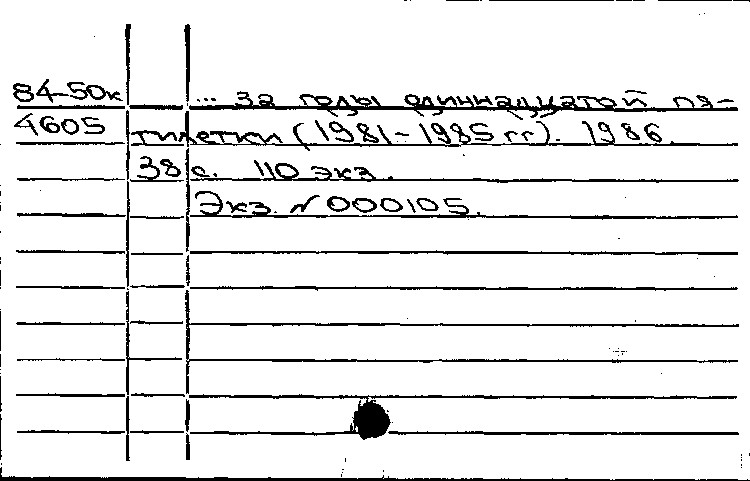 84-50к ... за годы одиннадцатой пя-
4605 тилетки (1981-1985 гг). 1986.
38 с. 110 экз.
Экз. № 000105.